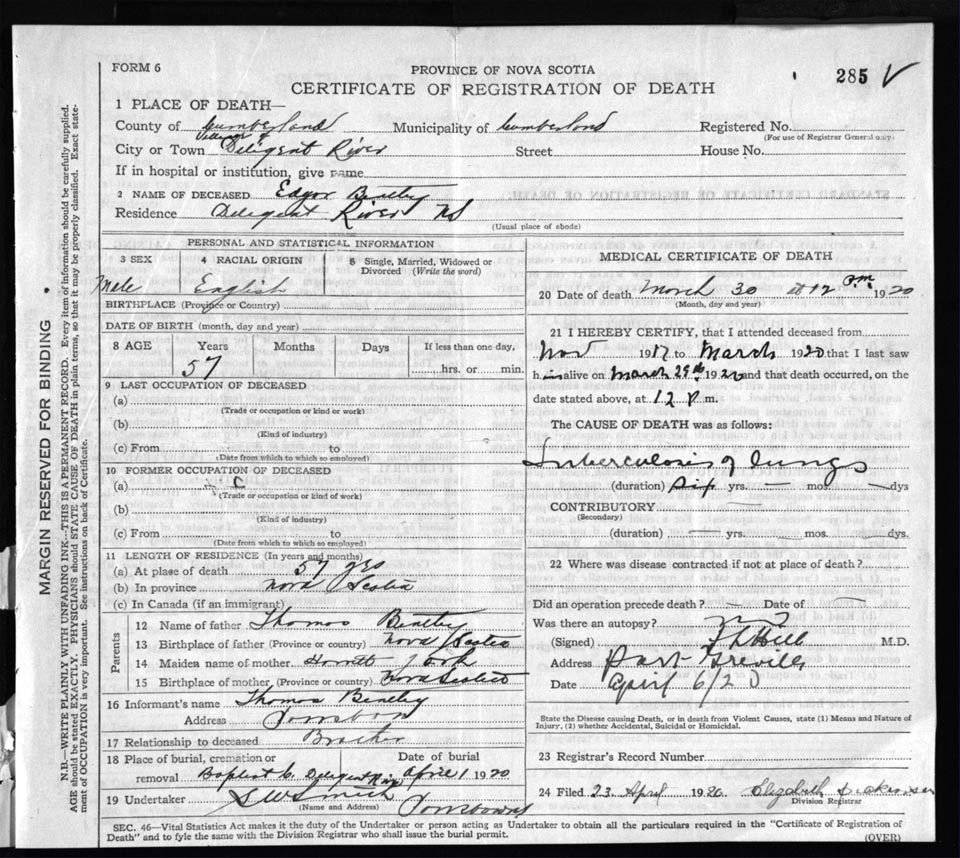 FORM 6
PROVINCE OF NOVA SCOTIA
285 V
CERTIFICATE OF REGISTRATION OF DEATH
1 PLACE OF DEATH—
County of Cumberland Municipality of Cumberland Registered No.
(For use of Registrar General only)
Village of
City or Town Diligent River Street House No.
If in hospital or institution, give name
2 NAME OF DECEASED Edgar Bentley
Residence Diligent River NS
(Usual place of abode)
PERSONAL AND STATISTICAL INFORMATION
3 SEX 4 RACIAL ORIGIN 5 Single, Married, Widowed or Divorced (Write the word)
Male English
BIRTHPLACE (Province or Country)
DATE OF BIRTH (month, day and year)
8 AGE Years Months Days If less than one day,
57 hrs. or min.
9 LAST OCCUPATION OF DECEASED
(a)
(Trade or occupation or kind or work)
(b)
(Kind of industry)
(c) From to
(Date from which to which so employed)
10 FORMER OCCUPATION OF DECEASED
(a)
(Trade or occupation or kind or work)
(b)
(Kind of industry)
(c) From to
(Date from which to which so employed)
11 LENGTH OF RESIDENCE (In years and months)
(a) At place of death 57 yrs
(b) In province Nova Scotia
(c) In Canada (if an immigrant)
Parents
12 Name of father Thomas Bentley
13 Birthplace of father (Province or country) Nova Scotia
14 Maiden name of mother York
15 Birthplace of mother (Province or country) Nova Scotia
16 Informant's name Thomas Bentley
Address
17 Relationship to deceased Brother
18 Place of burial, cremation or Date of burial
removal Baptist C. Diligent Riv April 1 1920
19 Undertaker S W Smith
(Name and Address)
MEDICAL CERTIFICATE OF DEATH
20 Date of death March 30 at 12 P.m. 1920
(Month, day and year)
21 I HEREBY CERTIFY, that I attended deceased from
Nov 1917 to March 1920 that I last saw
him alive on March 29th 1920 and that death occurred, on the
date stated above, at 12 P.m.
The CAUSE OF DEATH was as follows:
Tuberculosis of lungs
(duration) Six yrs. — mos. — dys
CONTRIBUTORY
(Secondary)
(duration) — yrs. — mos. — dys.
22 Where was disease contracted if not at place of death?
Did an operation precede death? — Date of —
Was there an autopsy? no
(Signed) Hill M.D.
Address Port Greville
Date April 6/20
State the Disease causing Death, or in death from Violent Causes, state (1) Means and Nature of
Injury, (2) whether Accidental, Suicidal or Homicidal.
23 Registrar's Record Number
24 Filed 23 April 1920 Elizabeth
Division Registrar
SEC. 46—Vital Statistics Act makes it the duty of the Undertaker or person acting as Undertaker to obtain all the particulars required in the "Certificate of Registration of
Death" and to file the same with the Division Registrar who shall issue the burial permit.
(OVER)
MARGIN RESERVED FOR BINDING
N.B.—WRITE PLAINLY WITH UNFADING INK—THIS IS A PERMANENT RECORD. Every item of information should be carefully supplied.
AGE should be stated EXACTLY. PHYSICIANS should STATE CAUSE OF DEATH in plain terms, so that it may be properly classified. Exact state-
ment of OCCUPATION is very important. See instructions on back of Certificate.